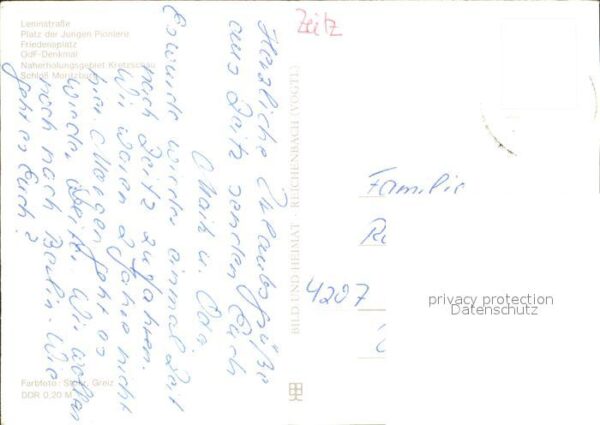 Leninstraße
Platz der Jungen Pioniere
Friedensplatz
OdF-Denkmal
Naherholungsgebiet Kretzschau
Schloß Moritzburg
Zeitz
Herzliche Urlaubsgrüße
aus Zeitz senden Euch
Maik u.
Es wurde wieder einmal Zeit
nach Zeitz zu fahren.
Wir waren 2 Jahre nicht
hier. Morgen geht es
wieder weiter. Wir wollen
noch nach Berlin. Wie
geht es Euch?
BILD UND HEIMAT · REICHENBACH (VOGTL)
Familie
4207
privacy protection
Datenschutz
Farbfoto: Greiz
DDR 0,20 M